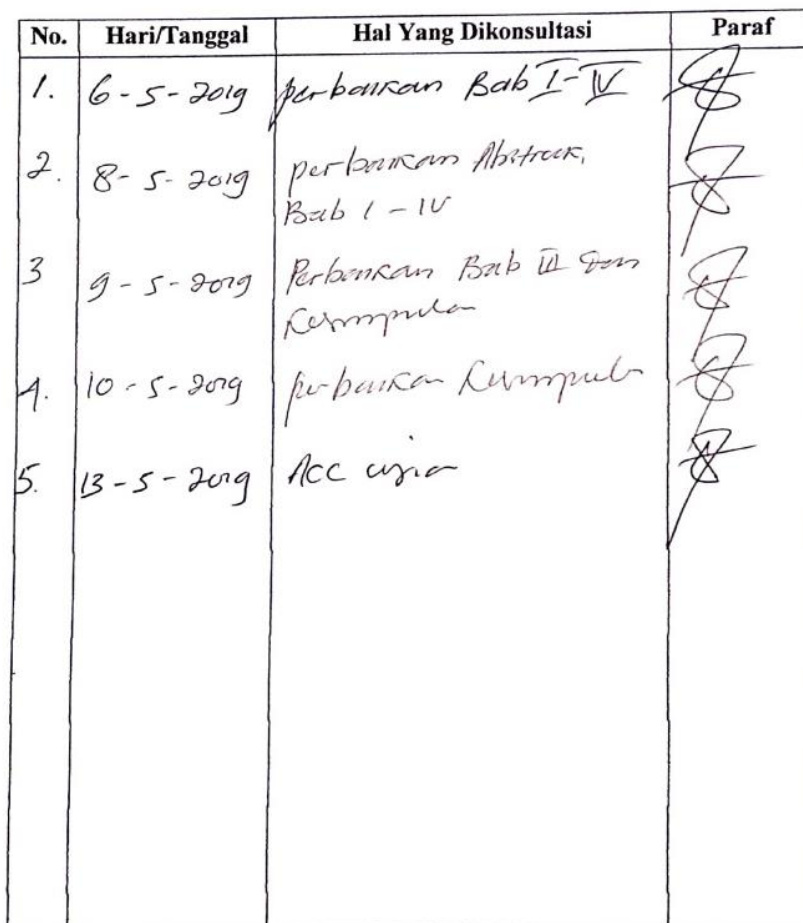 No. Hari/Tanggal Hal Yang Dikonsultasi Paraf
1. 6-5-2019 perbaikan Bab I-IV
2. 8-5-2019 perbaikan Abstrack,
Bab I-IV
3 9-5-2019 Perbaikan Bab III dan
Kesimpulan
4. 10-5-2019 perbaikan Kesimpulan
5. 13-5-2019 ACC ujian